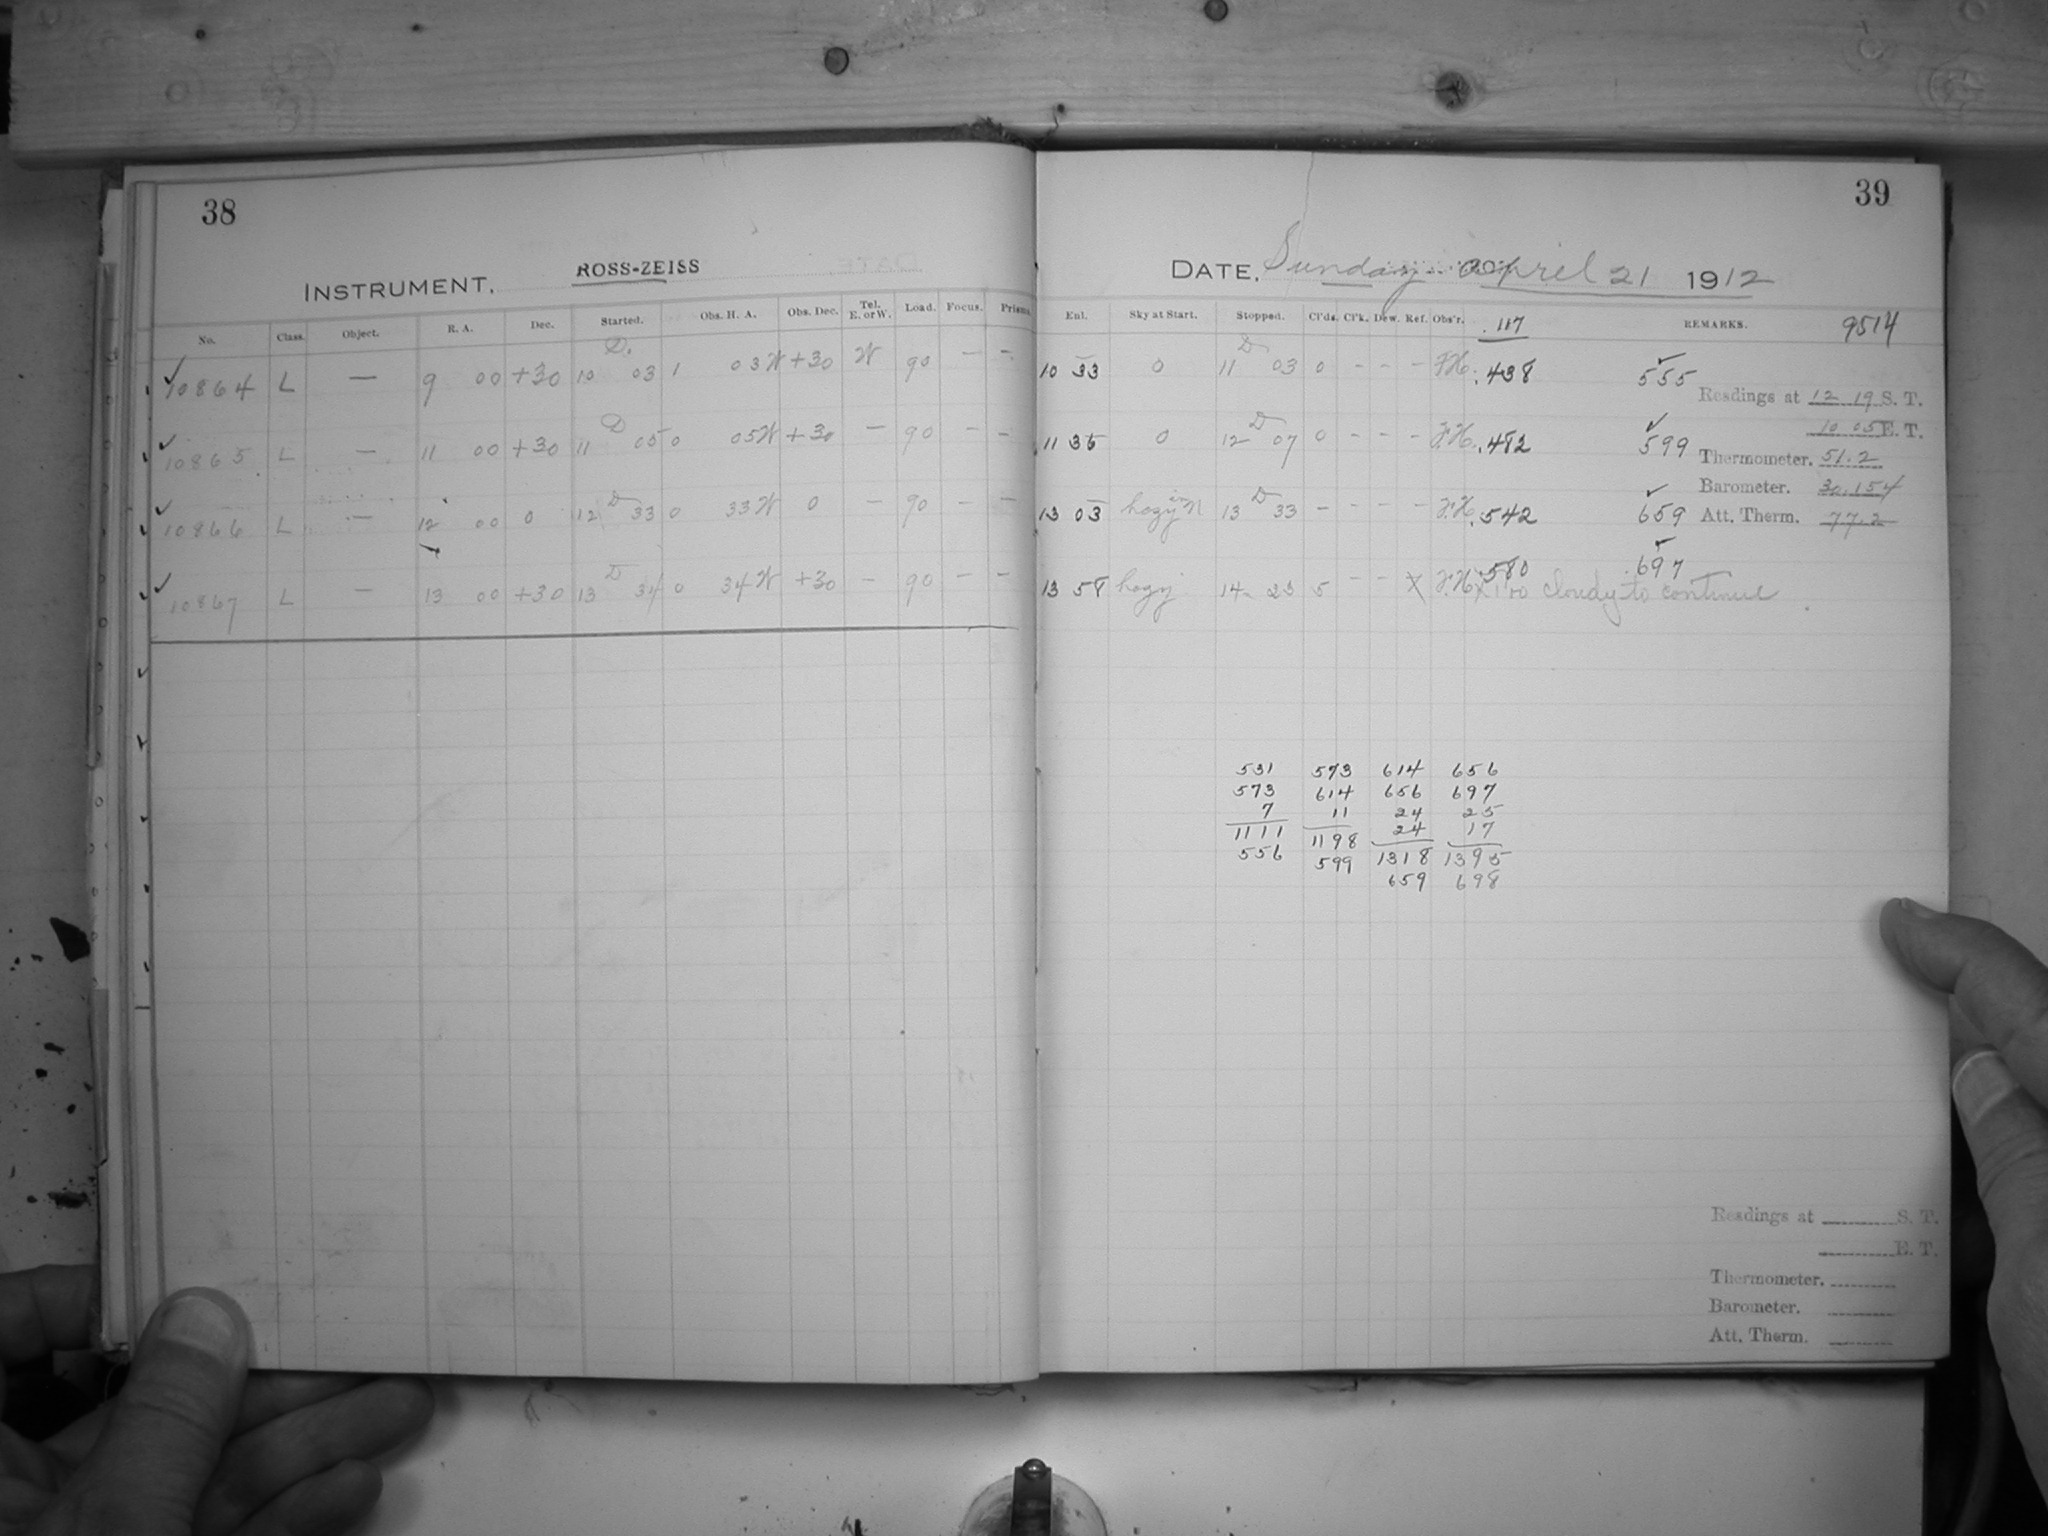 38
INSTRUMENT. ROSS-ZEISS
No. Class. Object. R. A. Dec. Started. Obs. H. A. Obs. Dec. Tel. E. or W. Load. Focus. Prisms.
✓ 10864 L — 9 00 +30 10 D. 03 1 03 W +30 W 90 — —
✓ 10865 L — 11 00 +30 11 D 05 0 05 W +30 — 90 — —
✓ 10866 L — 12 00 0 12 D 33 0 33 W 0 — 90 — —
✓ 10867 L — 13 00 +30 13 D 34 0 34 W +30 — 90 — —
39
DATE. Sunday April 21 1912
Ent. Sky at Start. Stopped. Cl'ds. Cl'k. Dew. Ref. Obs'r. .117 REMARKS. 9514
10 33 0 11 D 03 0 - - - F.H. .438 555 ✓
11 36 0 12 D 07 0 - - - F.H. .482 599 ✓
13 03 hazy in N 13 D 33 - - - - F.H. .542 659 ✓
13 58 hazy 14 23 5 - - X F.H. .580 697 ✓
X Too cloudy to continue
Readings at 12 19 S. T.
10 05 E. T.
Thermometer. 51.2
Barometer. 30.154
Att. Therm. 77.2
531 573 614 656
573 614 656 697
7 11 24 25
1111 1198 24 17
556 599 1318 1395
659 698
Readings at S. T.
E. T.
Thermometer.
Barometer.
Att. Therm.